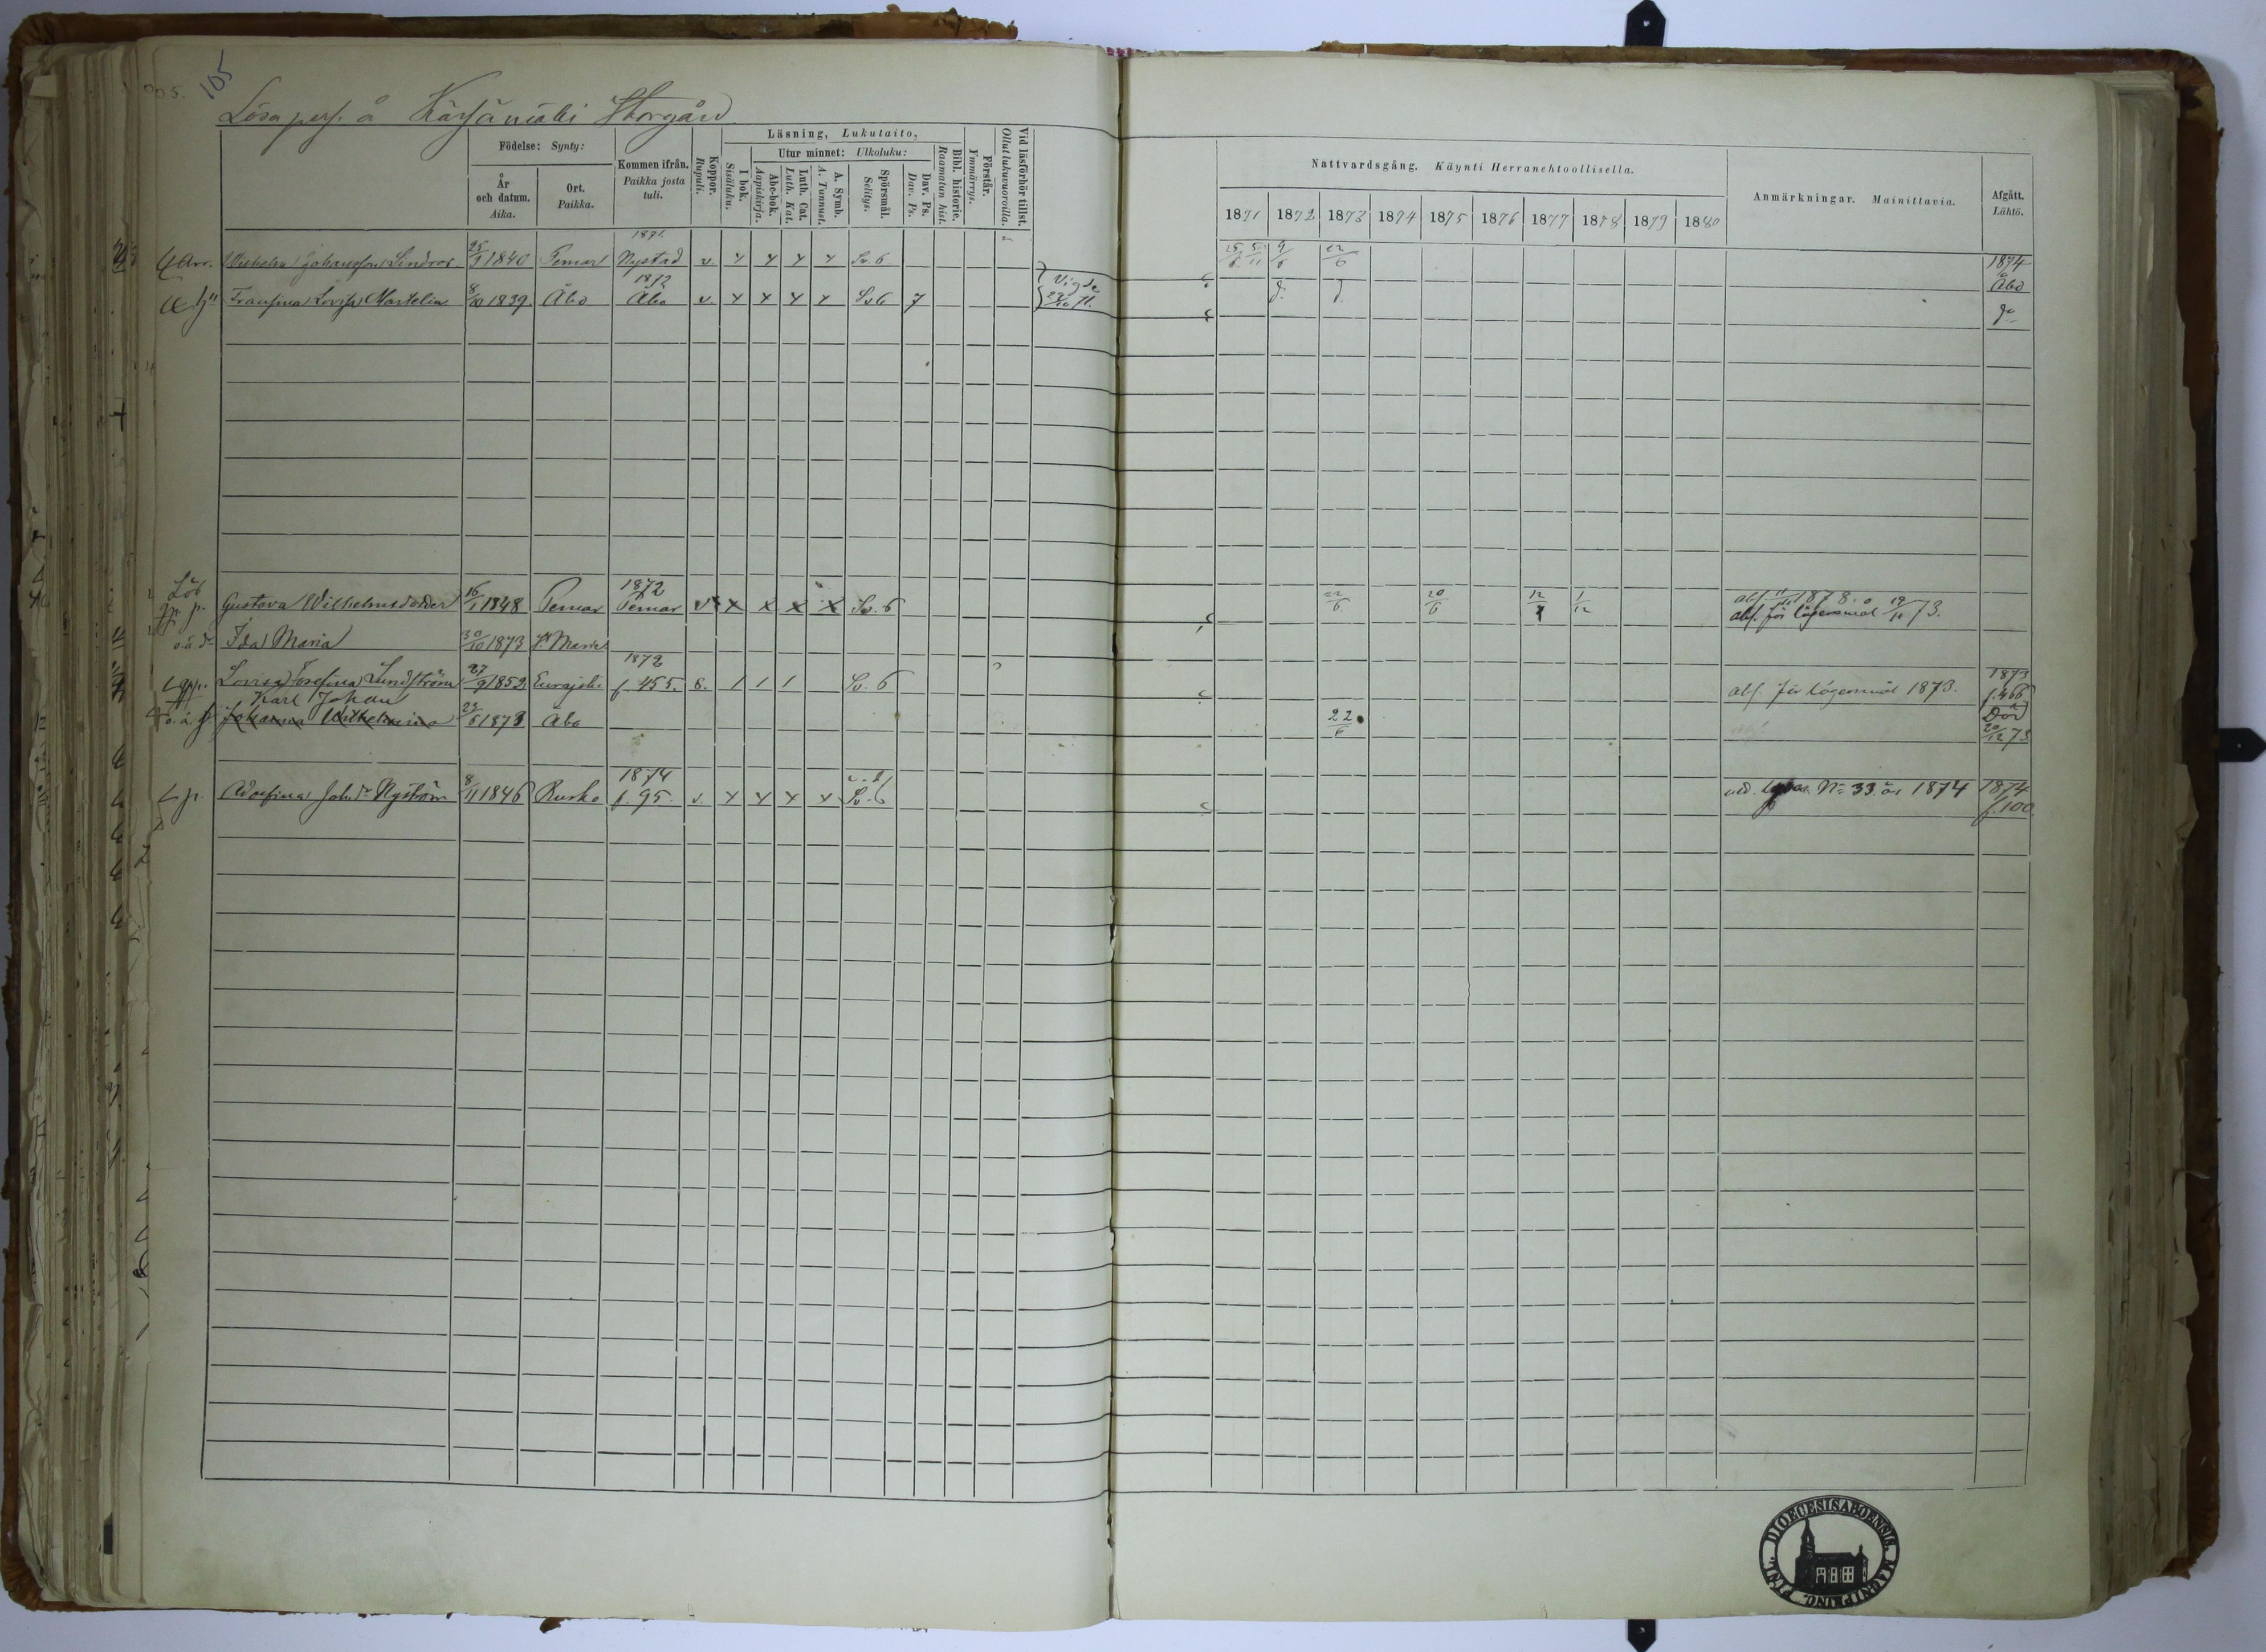 105
Lösa pers. å Kärsämäki Storgård
Födelse: Synty:
År och datum. Aika.
Ort. Paikka.
Kommen ifrån. Paikka josta tuli.
Koppor. Rupuli.
Läsning, Lukutaito,
I bok. Sisäluku.
Utur minnet: Ulkoluku:
Abc-bok. Aapiskirja.
Luth. Cat. Luth. Kat.
A. Symb. A. Tunnust.
Spörsmål. Selitys.
Dav. Ps. Dav. Ps.
Bibl. historie. Raamatun hist.
Förstår. Ymmärrys.
Vid läsförhör tillst. Ollut lukuvuoroilla.
Nattvardsgång. Käynti Herranehtoollisella.
1871 1872 1873 1874 1875 1876 1877 1878 1879 1880
Anmärkningar. Mainittavia.
Afgått. Lähtö.
1871
Arr. Wilhelm Johansson Lindros 25/9 1840 Pemar Nystad v. Sv. 6 9/6 22/6 1874
1872 Vigde Åbo
H:u Fransina Lovisa Martelin 8/10 1839 Åbo Åbo v. Sv. 6 7 22/10 71. d:o
Lös
1872
p. Gustava Wilhelmsdotter 16/1 1848 Pemar Pemar v Sv. 6 22/6 20/6 12/7 1/12 abs. 11/11 1878. abs. för lägersmål 19/11 73.
o.ä.d. Ida Maria 30/10 1873 S:t Marie
1872 1873
Lovisa Josefina Lundström 27/9 1852 Eurajoki f. 455. S. 1 1 1 Sv. 6 abs. för lägersmål 1873. f. 466
Karl Johan
o.ä. Johanna Wilhelmina 23/6 1873 Åbo 22/6 Död 20/12 73
1874
p. Adolfina Joh:dr Nyström 8/11 1846 Rusko f. 95. v. Sv. 6 N:o 33 år 1874 1874
f. 100.
DIOECESIS ABOENSIS. MAGNI PRINC. FINL.